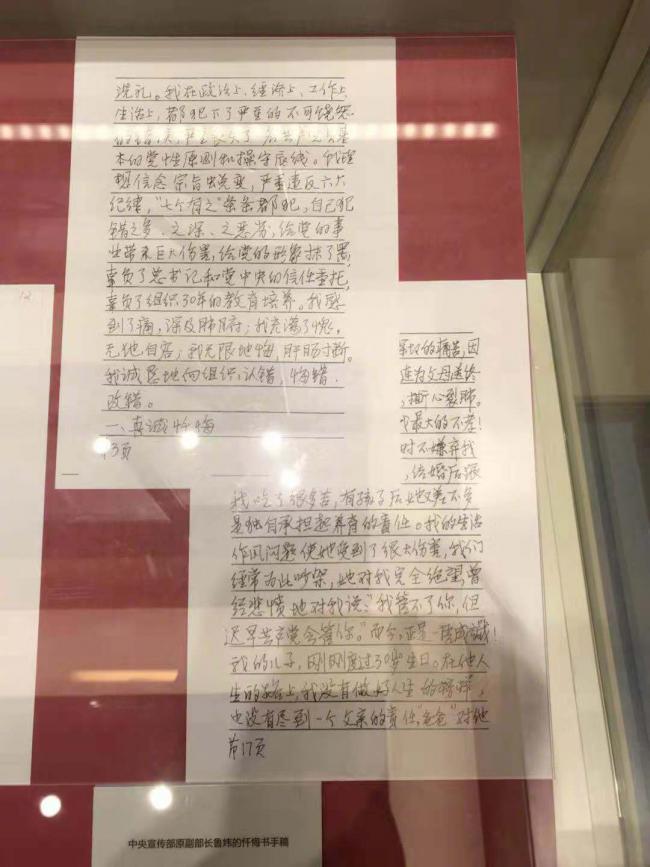 洗礼。我在政治上、经济上、工作上、
生活上，都犯下了严重的不可饶恕
的错误，严重丧失了一名共产党人基
本的党性原则和操守底线。我理
想信念宗旨出现蜕变，严重违反六大
纪律，“七个有之”条条都犯，自己犯
错之多、之深、之恶劣，给党的事
业带来巨大伤害，给党的形象抹了黑，
辜负了总书记和党中央的信任重托，
辜负了组织30年的教育培养。我感
到了痛，深及肺腑；我充满了愧，
无地自容；我无限地悔，肝肠寸断。
我诚恳地向组织：认错、悔错、
改错。
一、真诚忏悔
第3页
12
的痛苦，因
连为父母送终
，撕心裂肺。
中最大的不孝！
时不嫌弃我，
，结婚后跟
我吃了很多苦，有孩子后她差不多
是独自承担起养育的责任。我的生活
作风问题使她受到了很大伤害，我们
经常为此吵架，她对我完全绝望，曾
经悲愤地对我说：“我管不了你，但
迟早共产党会管你。”而今，正是一语成谶！
我的儿子，刚刚度过30岁生日。在他人
生的路上，我没有做好人生的榜样，
也没有尽到一个父亲的责任，“爸爸”对他
第17页
中央宣传部原副部长鲁炜的忏悔书手稿